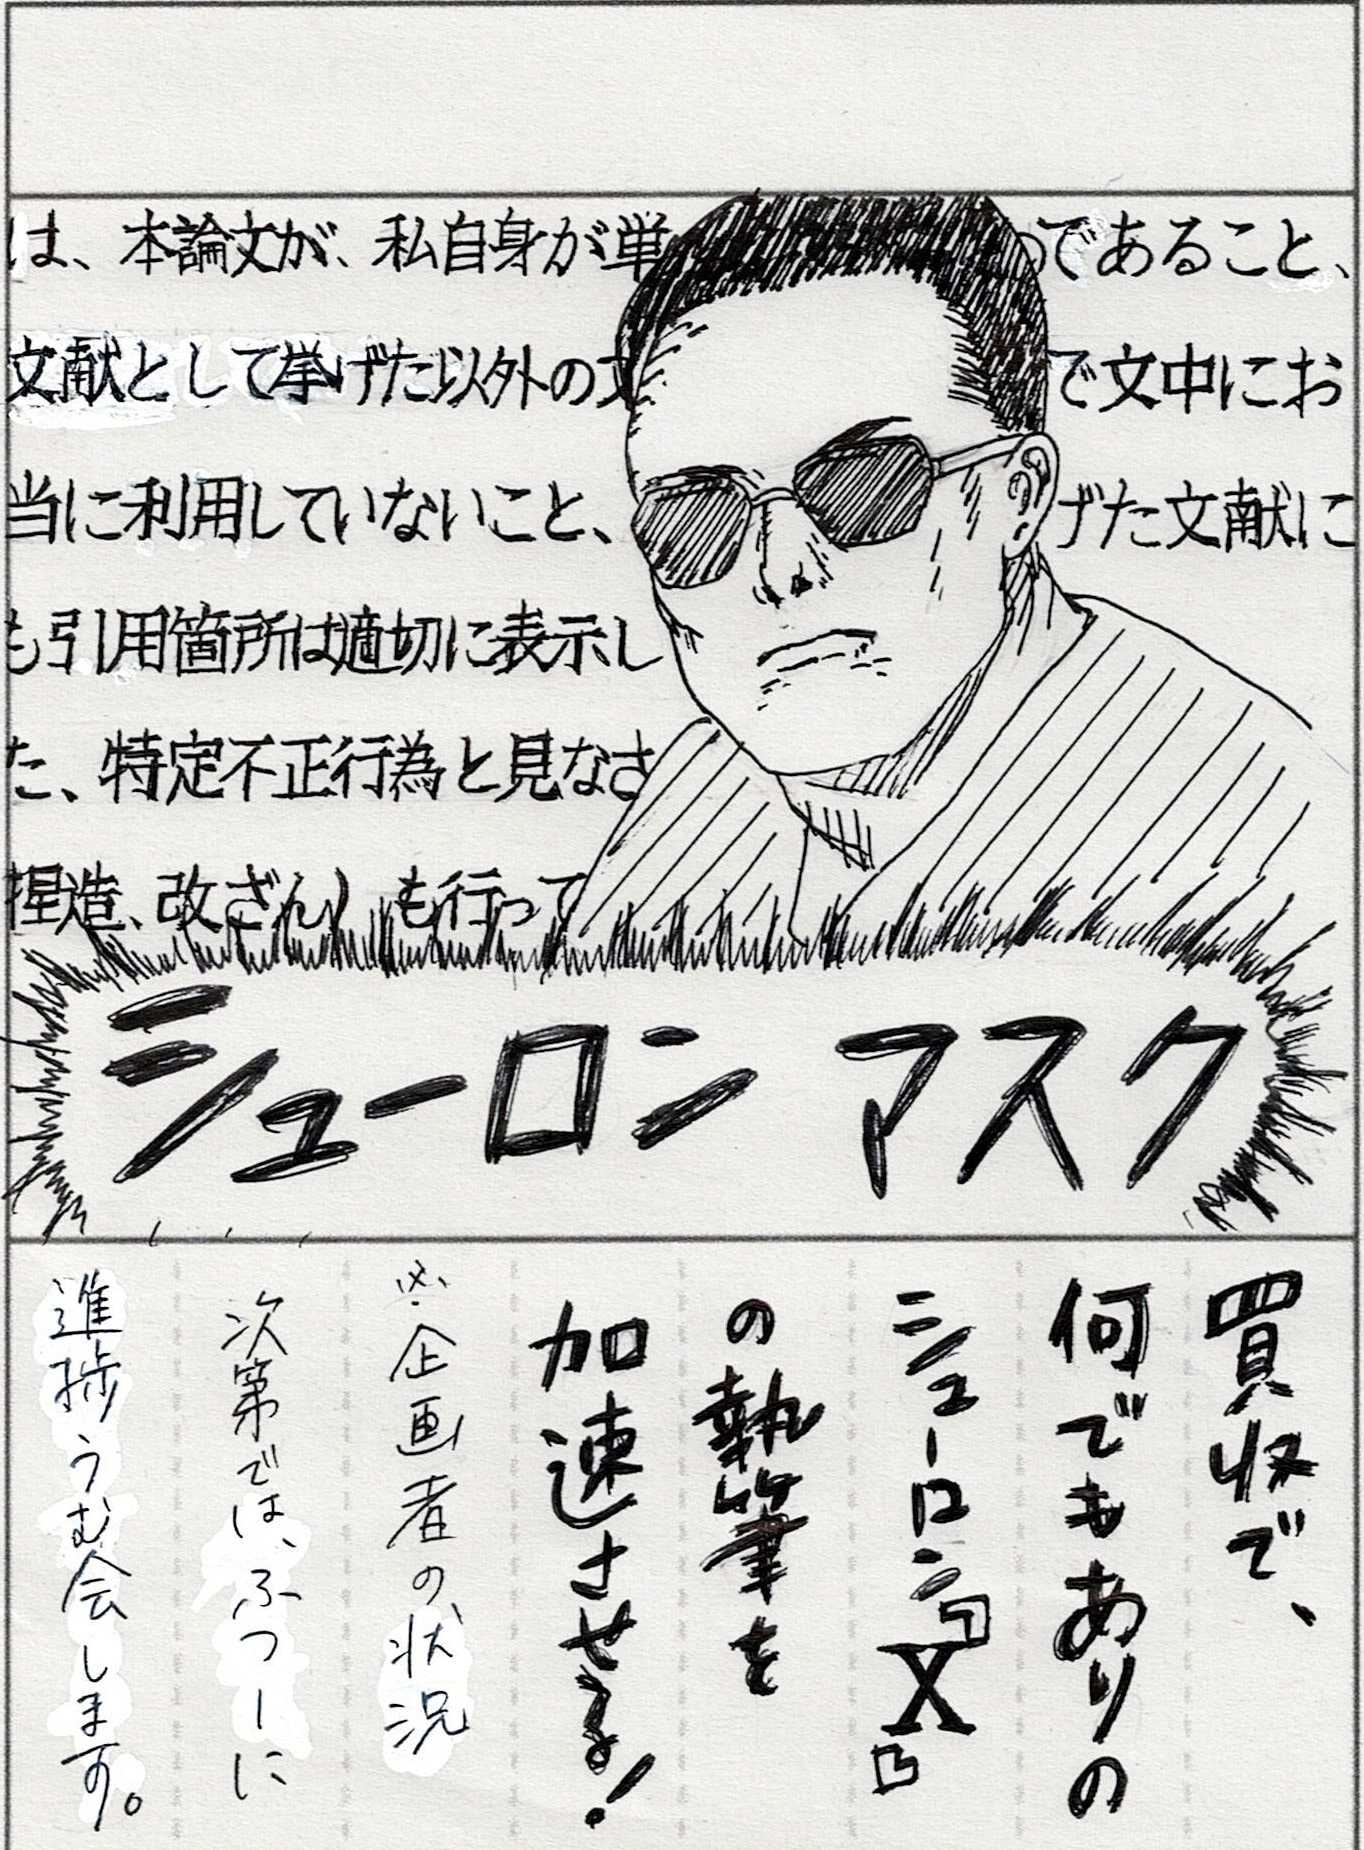 は、本論文が、私自身が単 のであること、
文献として挙げた以外の文 で文中にお
当に利用していないこと、 げた文献に
も引用箇所は適切に表示し
た、特定不正行為と見なさ
捏造、改ざん)も行って
シューロン マスク
買収で、
何でもありの
シューロン『X』
の執筆を
加速させる!
※企画者の状況
次第では、ふつーに
進捗うむ会します。